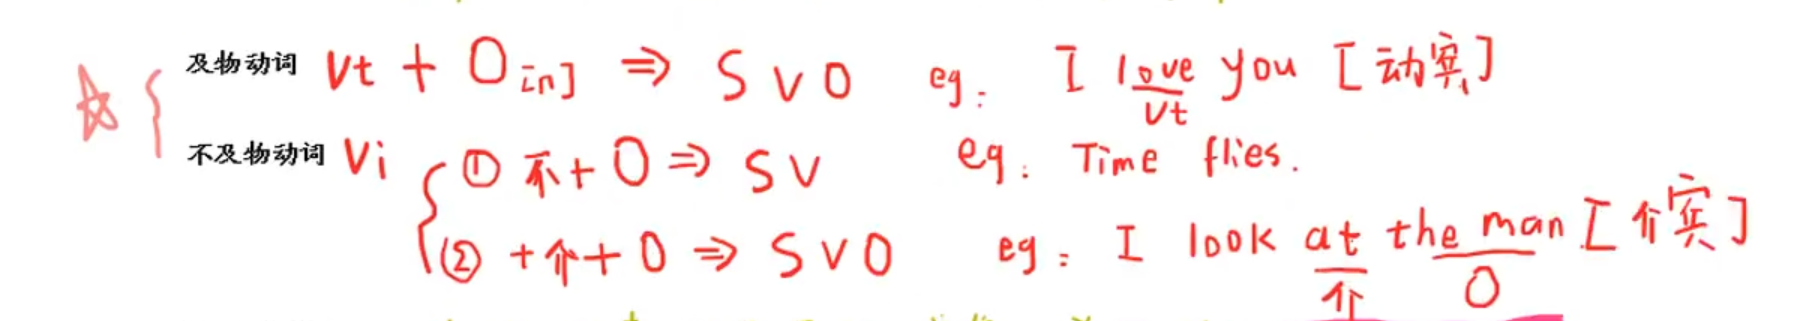 及物动词 Vt + O [n] ⇒ S V O eg: I love you [动宾]
Vt
不及物动词 Vi ① 不+O ⇒ S V eg: Time flies.
② +介+O ⇒ S V O eg: I look at the man [介宾]
介 O